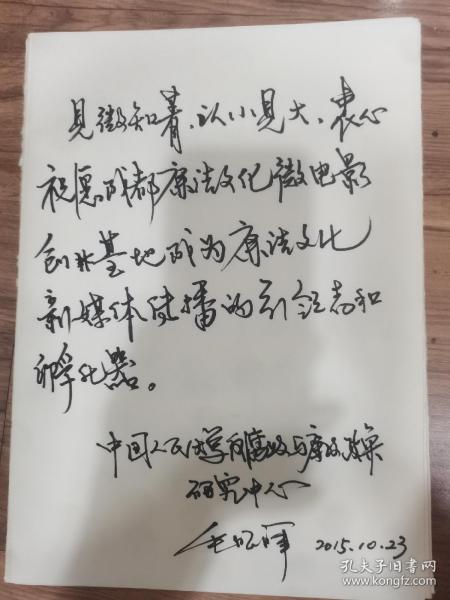 見微知著，以小见大，衷心
祝愿成都廉洁文化微电影
创作基地成为廉洁文化
新媒体传播的引领者和
孵化器。
中国人民大学反腐败与廉政政策
研究中心
毛昭晖 2015.10.23
孔夫子旧书网
www.kongfz.com